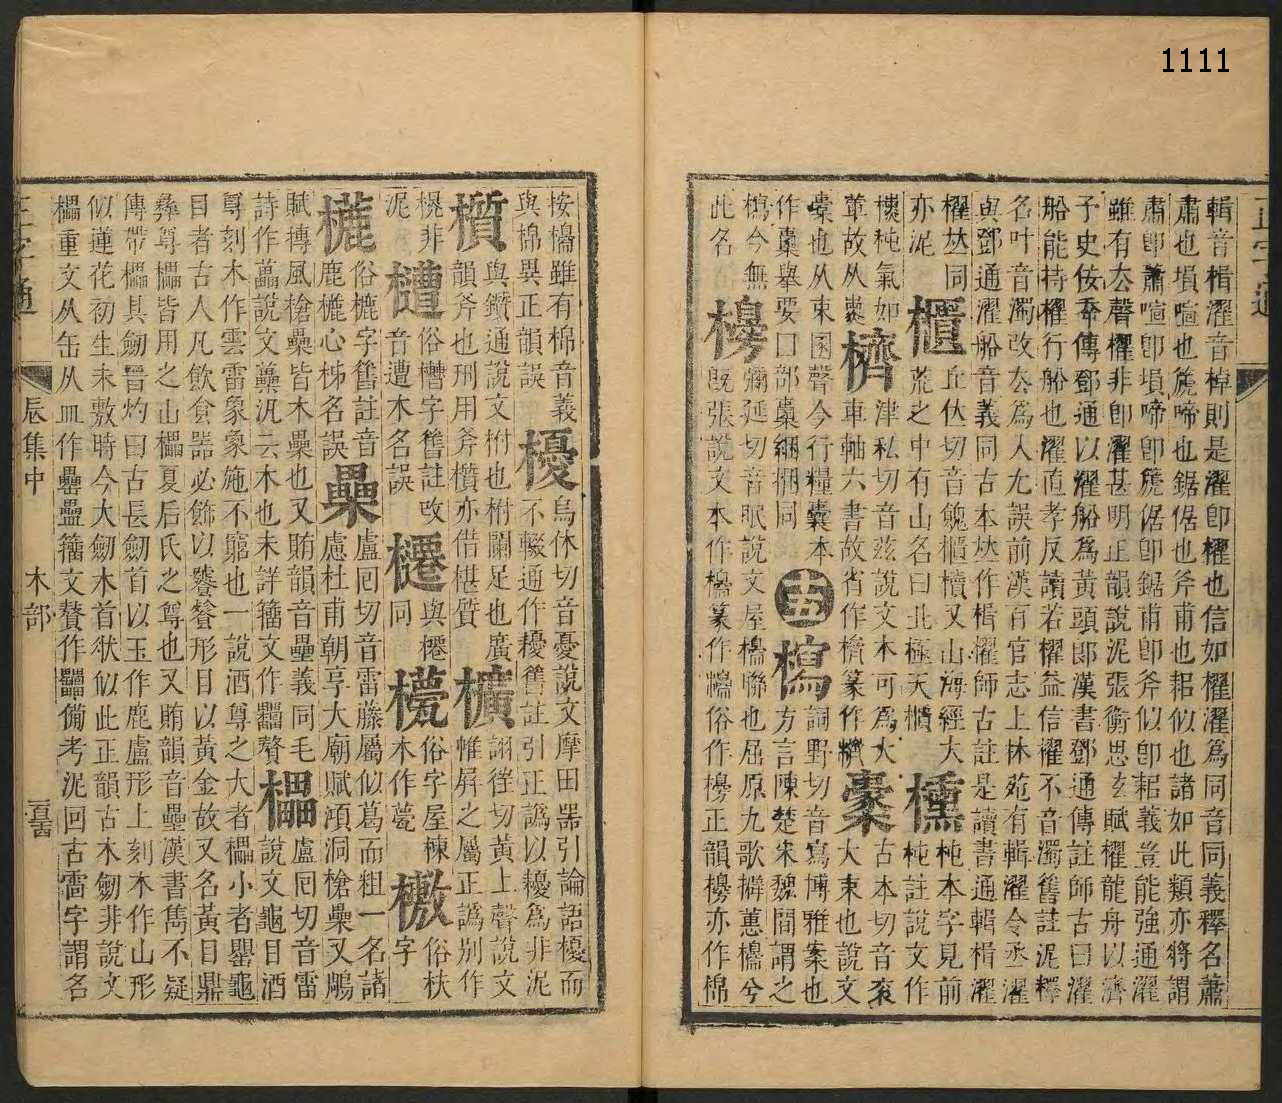 輯音楫濯音棹則是濯卽櫂也信如櫂濯爲同音同義釋名蕭
肅也塤喧也篪啼也鋸倨也斧甫也耜似也諸如此類亦將謂
肅卽蕭喧卽塤啼卽篪倨卽鋸甫卽斧似卽耜義豈能強通濯
雖有厺聲櫂非卽濯甚明正韻說泥張衡思玄賦櫂龍舟以濟
予史佞傳鄧通以濯船爲黃頭郞漢書鄧通傳註師古曰濯
船能持櫂行船也濯直孝反讀若櫂益信櫂不音濁舊註泥釋
名叶音濁改厺爲入尤誤前漢百官志上林苑有輯濯令丞濯
與鄧通濯船音義同古本作楫櫂師古註是讀書通輯楫濯
櫂同亦泥 櫃丘位切音餽櫃櫝又山海經大荒之中有山名曰北極天櫃 櫄杶本字見前杶註說文作
櫄杶氣如 櫅津私切音茲說文木可爲大車軸六書故省作櫅篆作 櫜古本切音袞大束也說文
橐也从束圂聲今行糧囊本作橐舉要口部橐綑捆同 十五 㰇詞野切音寫博雅案也方言陳楚宋魏閒謂之
㰇今無此名 櫋彌延切音眠說文屋櫋聯也屈原九歌擗蕙櫋兮旣張說文本作櫋篆作俗作櫋正韻櫋亦作棉
按櫋雖有棉音義與棉異正韻誤 櫌烏休切音憂說文摩田器引論語櫌而不輟通作耰舊註引正譌以耰爲非泥
櫍與鑕通說文柎也柎闌足也廣韻斧也刑用斧櫍亦借椹質 櫎詡徃切黃上聲說文帷屛之屬正譌別作
榥非泥 俗槽字舊註改音遭木名誤 櫏與櫏同 俗字屋棟木作甍 俗杖字
櫖俗樚字舊註音鹿樚心柹名誤 櫐盧回切音雷藤屬似葛而粗一名諸慮杜甫朝享大廟賦澒洞槍櫐又鵰
賦摶風槍櫐皆木櫐也又賄韻音壘義同毛詩作藟說文虆汎云木也未詳籒文作𣡧贅 櫑盧回切音雷說文龜目酒
尊刻木作雲雷象象施不窮也一說酒尊之大者櫑小者罍龜
目者古人凡飮食器必飾以饕餮形目以黃金故又名黃目鼎
彝尊櫑皆用之山櫑夏后氏之尊也又賄韻音壘漢書雋不疑
傳帶櫑具劒晉灼曰古長劒首以玉作鹿盧形上刻木作山形
似蓮花初生未敷時今大劒木首狀似此正韻古木劒非說文
櫑重文从缶从皿作罍𥂖籒文贅作備考泥回古雷字謂名
正字通
辰集中
木部